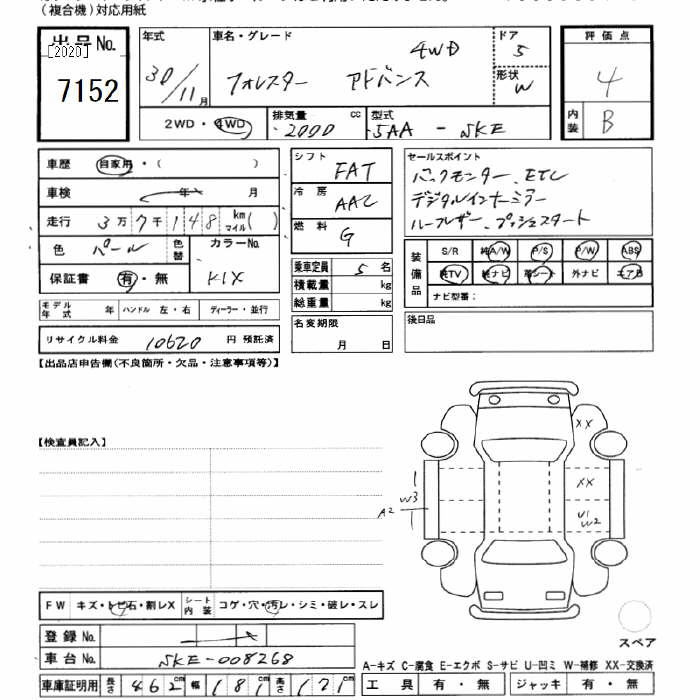 (複合機)対応用紙
出品No.
[2020]
7152
年式
30/11月
車名・グレード
フォレスター アドバンス 4WD
ドア
5
形状
W
2WD・4WD
排気量
2000 cc
型式
5AA - SKE
評価点
4
内装
B
車歴 自家用・( )
車検 年 月
走行 3万7千148 km マイル( )
色 パール 色替
カラーNo.
K1X
保証書 有・無
モデル年式 年 ハンドル 左・右 ディーラー・並行
リサイクル料金 10620 円 預託済
シフト FAT
冷房 AAC
燃料 G
乗車定員 5 名
積載量 kg
総重量 kg
名変期限
月 日
セールスポイント
バックモンター、ETC
デジタルインナーミラー
ルーフレザー、プッシュスタート
装備品
S/R 純A/W P/S P/W ABS
純TV 純ナビ 革シート 外ナビ エアB
ナビ型番:
後日品
【出品店申告欄(不良箇所・欠品・注意事項等)】
【検査員記入】
XX
XX
U1
W2
W3
A2
1
1
FW キズ・トビ石・割レX
シート内装 コゲ・穴・汚レ・シミ・破レ・スレ
登録No.
車台No. SKE-008268
車庫証明用 長さ 462cm 幅 181cm 高さ 171cm
スペア
A-キズ C-腐食 E-エクボ S-サビ U-凹ミ W-補修 XX-交換済
工具 有・無 ジャッキ 有・無